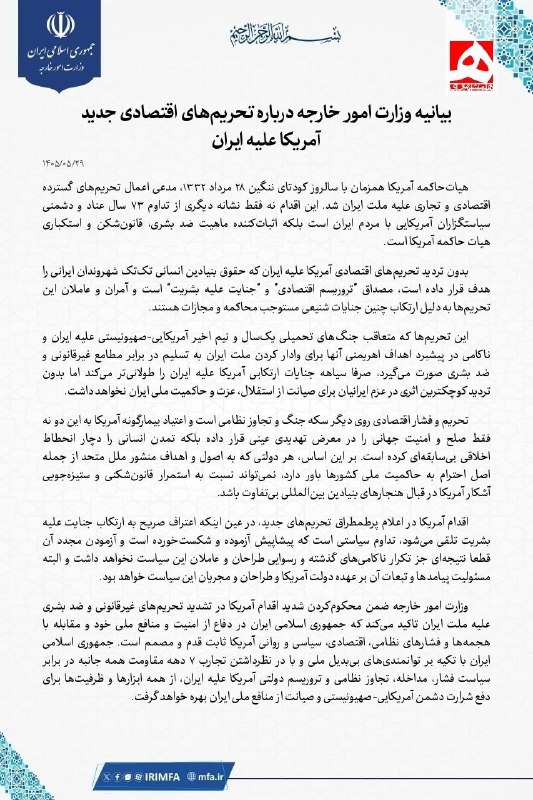 بسم الله الرحمن الرحیم
جمهوری اسلامی ایران
وزارت امور خارجه
بیانیه وزارت امور خارجه درباره تحریم‌های اقتصادی جدید
آمریکا علیه ایران
۱۴۰۵/۰۵/۲۹
هیات‌حاکمه آمریکا همزمان با سالروز کودتای ننگین ۲۸ مرداد ۱۳۳۲، مدعی اعمال تحریم‌های گسترده
اقتصادی و تجاری علیه ملت ایران شد. این اقدام نه فقط نشانه دیگری از تداوم ۷۳ سال عناد و دشمنی
سیاستگزاران آمریکایی با مردم ایران است بلکه اثبات‌کننده ماهیت ضد بشری، قانون‌شکن و استکباری
هیات حاکمه آمریکا است.
بدون تردید تحریم‌های اقتصادی آمریکا علیه ایران که حقوق بنیادین انسانی تک‌تک شهروندان ایرانی را
هدف قرار داده است، مصداق "تروریسم اقتصادی" و "جنایت علیه بشریت" است و آمران و عاملان این
تحریم‌ها به دلیل ارتکاب چنین جنایات شنیعی مستوجب محاکمه و مجازات هستند.
این تحریم‌ها که متعاقب جنگ‌های تحمیلی یک‌سال و نیم اخیر آمریکایی-صهیونیستی علیه ایران و
ناکامی در پیشبرد اهداف اهریمنی آنها برای وادار کردن ملت ایران به تسلیم در برابر مطامع غیرقانونی و
ضد بشری صورت می‌گیرد، صرفا سیاهه جنایات ارتکابی آمریکا علیه ایران را طولانی‌تر می‌کند اما بدون
تردید کوچکترین اثری در عزم ایرانیان برای صیانت از استقلال، عزت و حاکمیت ملی ایران نخواهد داشت.
تحریم و فشار اقتصادی روی دیگر سکه جنگ و تجاوز نظامی است و اعتیاد بیمارگونه آمریکا به این دو نه
فقط صلح و امنیت جهانی را در معرض تهدیدی عینی قرار داده بلکه تمدن انسانی را دچار انحطاط
اخلاقی بی‌سابقه‌ای کرده است. بر این اساس، هر دولتی که به اصول و اهداف منشور ملل متحد از جمله
اصل احترام به حاکمیت ملی کشورها باور دارد، نمی‌تواند نسبت به استمرار قانون‌شکنی و ستیزه‌جویی
آشکار آمریکا در قبال هنجارهای بنیادین بین‌المللی بی‌تفاوت باشد.
اقدام آمریکا در اعلام پرطمطراق تحریم‌های جدید، در عین اینکه اعتراف صریح به ارتکاب جنایت علیه
بشریت تلقی می‌شود، تداوم سیاستی است که پیشاپیش آزموده و شکست‌خورده است و آزمودن مجدد آن
قطعا نتیجه‌ای جز تکرار ناکامی‌های گذشته و رسوایی طراحان و عاملان این سیاست نخواهد داشت و البته
مسئولیت پیامدها و تبعات آن بر عهده دولت آمریکا و طراحان و مجریان این سیاست خواهد بود.
وزارت امور خارجه ضمن محکوم‌کردن شدید اقدام آمریکا در تشدید تحریم‌های غیرقانونی و ضد بشری
علیه ملت ایران تاکید می‌کند که جمهوری اسلامی ایران در دفاع از امنیت و منافع ملی خود و مقابله با
هجمه‌ها و فشارهای نظامی، اقتصادی، سیاسی و روانی آمریکا ثابت قدم و مصمم است. جمهوری اسلامی
ایران با تکیه بر توانمندی‌های بی‌بدیل ملی و با در نظرداشتن تجارب ۷ دهه مقاومت همه جانبه در برابر
سیاست فشار، مداخله، تجاوز نظامی و تروریسم دولتی آمریکا علیه ایران، از همه ابزارها و ظرفیت‌ها برای
دفع شرارت دشمن آمریکایی-صهیونیستی و صیانت از منافع ملی ایران بهره خواهد گرفت.
IRIMFA mfa.ir